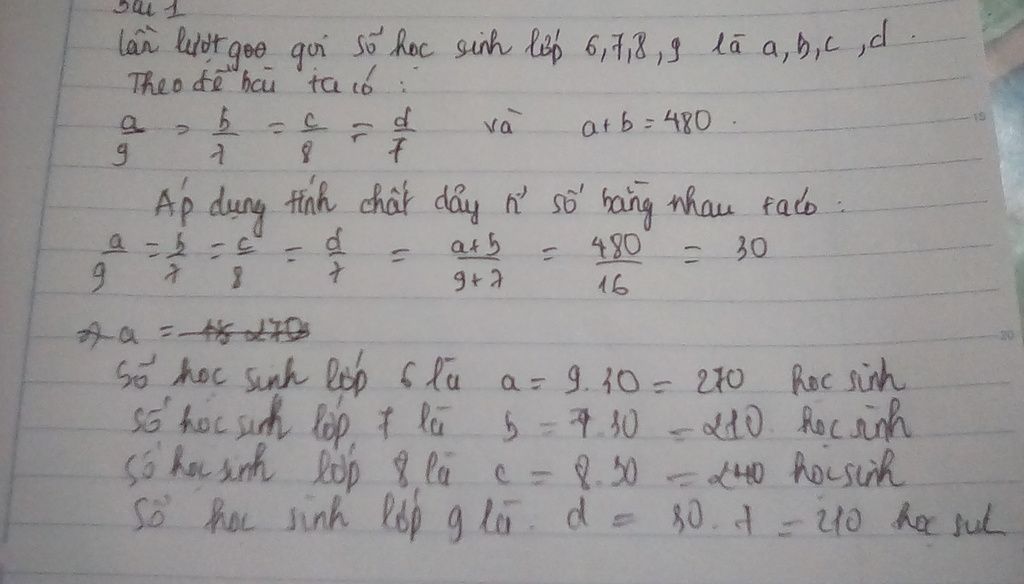 Bài 1
lần lượt gọi số học sinh lớp 6,7,8,9 là a,b,c,d.
Theo đề bài ta có:
a/9 = b/7 = c/8 = d/7 và a+b=480.
Áp dụng tính chất dãy tỉ số bằng nhau ta có:
a/9 = b/7 = c/8 = d/7 = a+b/9+7 = 480/16 = 30
=> a =
Số học sinh lớp 6 là a = 9.30 = 270 học sinh
Số học sinh lớp 7 là b = 7.30 = 210 học sinh
Số học sinh lớp 8 là c = 8.30 = 240 học sinh
Số học sinh lớp 9 là. d = 30.7 = 210 học sinh